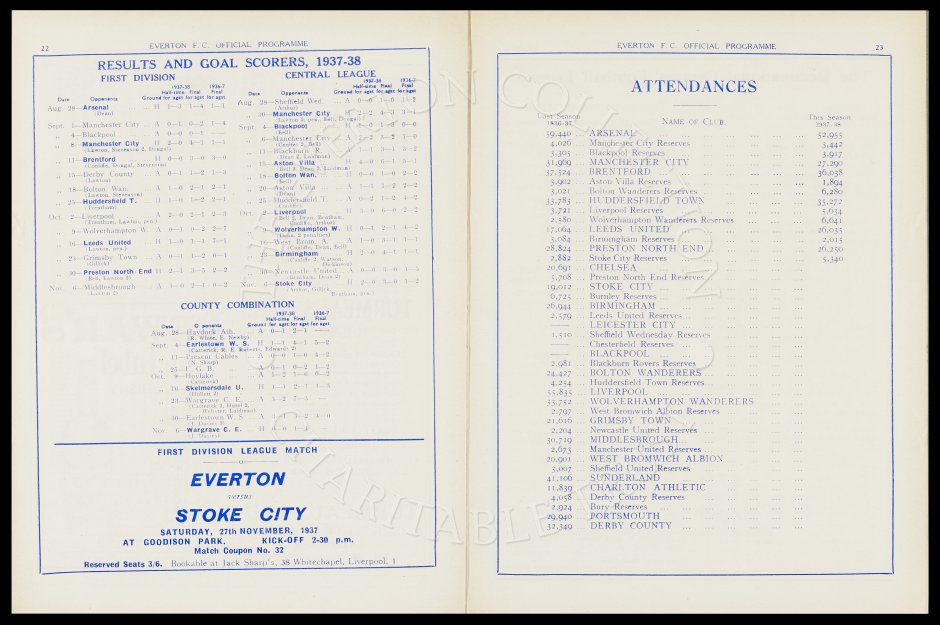 22
EVERTON F. C. OFFICIAL PROGRAMME
RESULTS AND GOAL SCORERS, 1937-38
FIRST DIVISION
1937-38 1936-7
Half-time Final Final
Date Opponents Ground for agst for agst for agst
Aug. 28—Arsenal ... H 1—3 1—4 1—1
(Dean)
Sept. 1—Manchester City ... A 0—1 0—2 1—4
„ 4—Blackpool ... A 0—0 0—1
„ 8—Manchester City H 2—0 4—1 1—1
(Lawton, Stevenson 2, Dougal)
„ 11—Brentford H 0—0 3—0 3—0
(Cunliffe, Dougal, Stevenson)
„ 15—Derby County A 0—1 1—2 1—3
(Lawton)
„ 18—Bolton Wan. A 1—0 2—1 2—1
(Lawton, Stevenson)
„ 25—Huddersfield T. H 1—0 1—2 2—1
(Trentham)
Oct. 2—Liverpool A 2—0 2—1 2—3
(Trentham, Lawton, pen.)
„ 9—Wolverhampton W. A 0—1 0—2 2—7
„ 16—Leeds United H 1—0 1—1 7—1
(Lawton, pen.)
„ 23—Grimsby Town A 0—1 1—2 0—1
(Gillick)
„ 30—Preston North End H 2—1 3—5 2—2
(Bell, Lawton 2)
Nov. 6—Middlesbrough A 1—0 2—1 0—2
(Lawton 2)
CENTRAL LEAGUE
1937-38 1936-7
Half-time Final Final
Date Opponents Ground for agst for agst for agst
Aug. 28—Sheffield Wed. A 0—0 1—0 1—2
(Arthur)
„ 30—Manchester City
Sept. 4—Blackpool
(Bell)
„ 6—Manchester City
(Cunliffe 2, Bell)
„ 11—Blackburn R.
(Dean 2, Laidman)
„ 15—Aston Villa H 4—0 6—1 5—1
„ 18—Bolton Wan.
(Bell)
„ 20—Aston Villa
(Dean)
„ 25—Huddersfield T.
(Cunliffe)
Oct. 2—Liverpool H 3—0 6—0 2—2
(Bell 2, Dean, Bentham,
Cunliffe, Arthur)
„ 9—Wolverhampton W. H 0—1 2—1 1—2
(Dean, 2 penalties)
16—West Brom. A.
(Cunliffe, Dean, Bell)
„ 23—Birmingham
(Cunliffe 2, Watson,
Dickinson)
„ 30—Newcastle United
(Bentham, Dean 2)
Nov. 6—Stoke City H 2—0 3—0 1—2
(Arthur, Gillick,
Bentham, pen.)
COUNTY COMBINATION
1937-38 1936-7
Half-time Final Final
Date Opponents Ground for agst for agst for agst
Aug. 28—Haydock Ath. A 0—1 2—1
(R. White, E. Newby)
Sept. 4—Earlestown W. S. H 1—1 4—1 5—2
„ 11—Prescot Cables A 0—0 1—0 4—2
(N. Sharp)
„ 25—U. G. B. A 0—1 0—2 1—2
Oct. 9—Hoylake
„ 16—Skelmersdale U. H 1—1 2—1 1—3
„ 23—Wargrave C. E. A 3—2 7—3
„ 30—Earlestown W. S.
Nov. 6—Wargrave C. E.
(J. Davies)
FIRST DIVISION LEAGUE MATCH
EVERTON
versus
STOKE CITY
SATURDAY, 27th NOVEMBER, 1937
AT GOODISON PARK. KICK-OFF 2-30 p.m.
Match Coupon No. 32
Reserved Seats 3/6. Bookable at Jack Sharp's, 38 Whitechapel, Liverpool, 1
EVERTON F. C. OFFICIAL PROGRAMME
23
ATTENDANCES
Last Season 1936-37 NAME OF CLUB. This Season 1937-38
59,440 ... ARSENAL ... 52,955
4,026 ... Manchester City Reserves ... 3,442
3,305 ... Blackpool Reserves ... 3,917
31,969 ... MANCHESTER CITY ... 27,290
37,524 ... BRENTFORD ... 36,038
3,902 ... Aston Villa Reserves ... 1,894
3,021 ... Bolton Wanderers Reserves ... 6,280
33,783 ... HUDDERSFIELD TOWN ... 35,272
3,721 ... Liverpool Reserves ... 5,634
2,580 ... Wolverhampton Wanderers Reserves ... 6,641
17,064 ... LEEDS UNITED ... 26,035
5,084 ... Birmingham Reserves ... 2,015
28,824 ... PRESTON NORTH END ... 26,250
2,882 ... Stoke City Reserves ... 5,340
20,691 ... CHELSEA
5,768 ... Preston North End Reserves ...
19,012 ... STOKE CITY ...
6,725 ... Burnley Reserves ...
26,944 ... BIRMINGHAM ...
2,579 ... Leeds United Reserves ...
—— ... LEICESTER CITY ...
1,510 ... Sheffield Wednesday Reserves ...
Chesterfield Reserves ...
—— BLACKPOOL
2,981 ... Blackburn Rovers Reserves ...
24,427 ... BOLTON WANDERERS ...
4,254 ... Huddersfield Town Reserves ...
55,835 ... LIVERPOOL ...
33,752 ... WOLVERHAMPTON WANDERERS
2,797 ... West Bromwich Albion Reserves ...
21,616 ... GRIMSBY TOWN ...
2,204 ... Newcastle United Reserves ...
30,719 ... MIDDLESBROUGH ...
2,073 ... Manchester United Reserves ...
20,901 ... WEST BROMWICH ALBION ...
3,007 ... Sheffield United Reserves ...
41,106 ... SUNDERLAND
11,839 ... CHARLTON ATHLETIC ...
4,058 ... Derby County Reserves ...
2,924 ... Bury Reserves ...
29,940 ... PORTSMOUTH ...
32,349 ... DERBY COUNTY ...